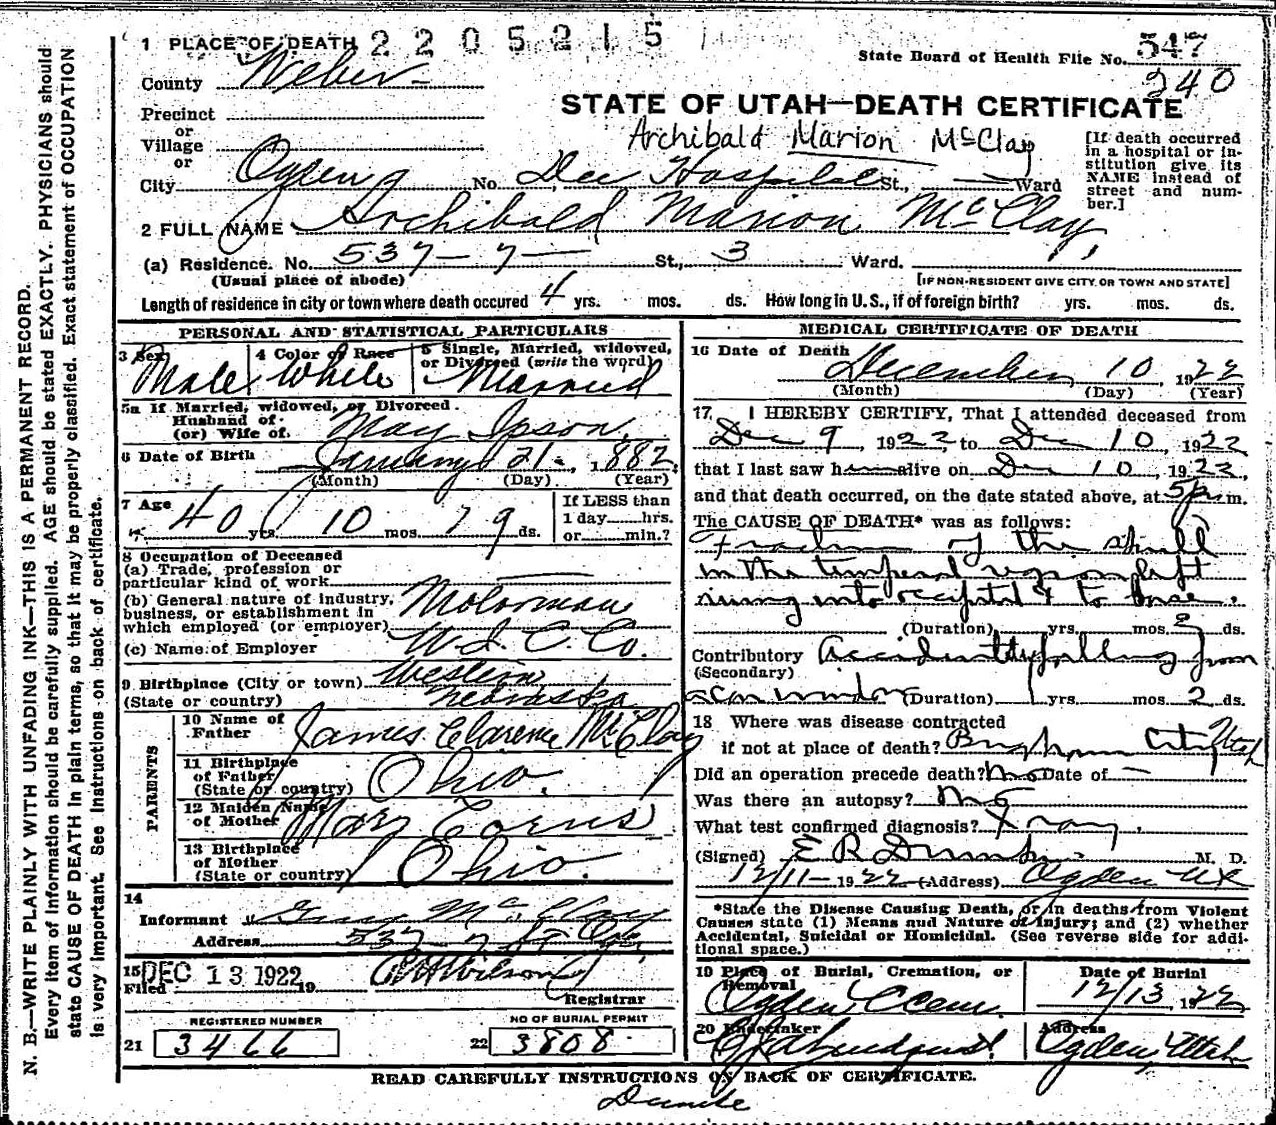 1 PLACE OF DEATH 2205215
State Board of Health File No. 547
240
County Weber
STATE OF UTAH—DEATH CERTIFICATE
Precinct
or
Village
or
Archibald Marion McClay
[If death occurred
in a hospital or in-
stitution give its
NAME instead of
street and num-
ber.]
City Ogden No. Dee Hospital St., Ward
2 FULL NAME Archibald Marion McClay,
(a) Residence. No. 537 - 7 - St., 3 Ward.
(Usual place of abode) [IF NON-RESIDENT GIVE CITY OR TOWN AND STATE]
Length of residence in city or town where death occured 4 yrs. mos. ds. How long in U.S., if of foreign birth? yrs. mos. ds.
PERSONAL AND STATISTICAL PARTICULARS
3 Sex 4 Color or Race 5 Single, Married, widowed,
or Divorced (write the word)
Male White Married
5a If Married, widowed, or Divorced.
Husband of
(or) Wife of. May Ipson.
6 Date of Birth January 21 -, 1882,
(Month) (Day) (Year)
7 Age 40 yrs. 10 mos. 19 ds.
If LESS than
1 day hrs.
or min.?
8 Occupation of Deceased
(a) Trade, profession or
particular kind of work
(b) General nature of industry,
business, or establishment in
which employed (or employer) Motorman
(c) Name of Employer U. I. C. Co.
9 Birthplace (City or town) Western
(State or country) Nebraska
PARENTS
10 Name of
Father James Clarence McClay
11 Birthplace
of Father
(State or country) Ohio.
12 Maiden Name
of Mother Mary
13 Birthplace
of Mother
(State or country) Ohio.
14
Informant McClay
Address 537 - 7 St Og.
15 DEC 13 1922
Filed 19 Wilson
Registrar
REGISTERED NUMBER NO OF BURIAL PERMIT
21 3466 22 3808
MEDICAL CERTIFICATE OF DEATH
16 Date of Death December 10, 1922
(Month) (Day) (Year)
17 I HEREBY CERTIFY, That I attended deceased from
Dec 9, 1922, to Dec 10, 1922
that I last saw him alive on Dec 10, 1922,
and that death occurred, on the date stated above, at 5 p m.
The CAUSE OF DEATH* was as follows:
Fracture of the skull
in the temperal region left
runing into occipital & to base.
(Duration) yrs. mos. 2 ds.
Contributory Accidently falling from
(Secondary)
a car window (Duration) yrs. mos. 2 ds.
18 Where was disease contracted
if not at place of death? Brigham City Utah
Did an operation precede death? no Date of -
Was there an autopsy? no
What test confirmed diagnosis? X ray.
(Signed) E R M. D.
12/11 - 1922 (Address) Ogden Ut
*State the Disease Causing Death, or in deaths from Violent
Causes state (1) Means and Nature of Injury; and (2) whether
Accidental, Suicidal or Homicidal. (See reverse side for addi-
tional space.)
19 Place of Burial, Cremation, or
Removal
Ogden C Cem.
Date of Burial
12/13, 1922
20 Undertaker
Lindquist
Address
Ogden, Utah
READ CAREFULLY INSTRUCTIONS ON BACK OF CERTIFICATE.
N. B.—WRITE PLAINLY WITH UNFADING INK—THIS IS A PERMANENT RECORD.
Every item of information should be carefully supplied. AGE should be stated EXACTLY. PHYSICIANS should
state CAUSE OF DEATH in plain terms, so that it may be properly classified. Exact statement of OCCUPATION
is very important. See Instructions on back of certificate.